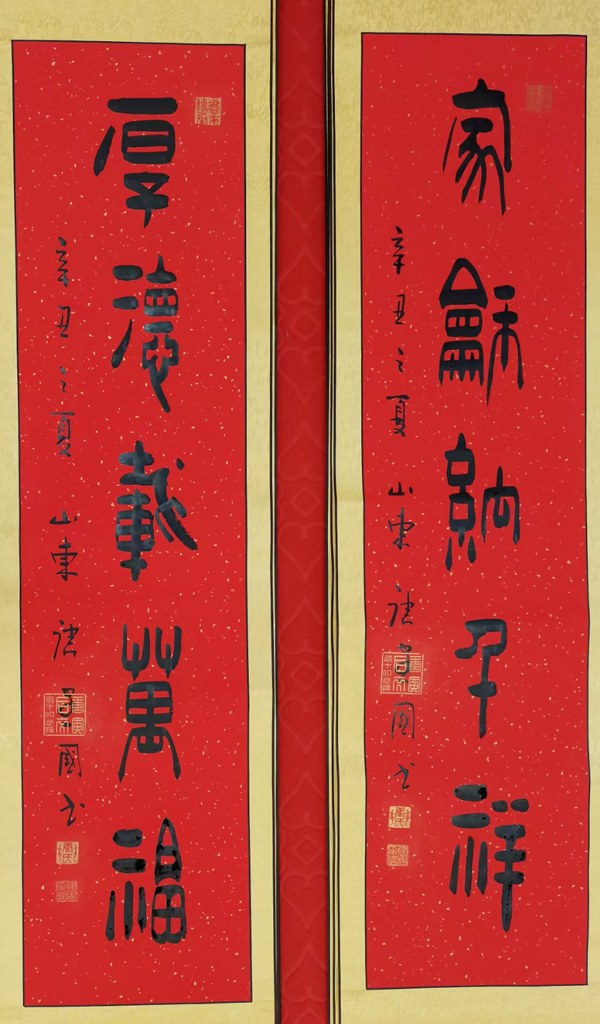 家龢納千祥
辛丑之夏山東国书
厚德載萬福
辛丑之夏山東國书